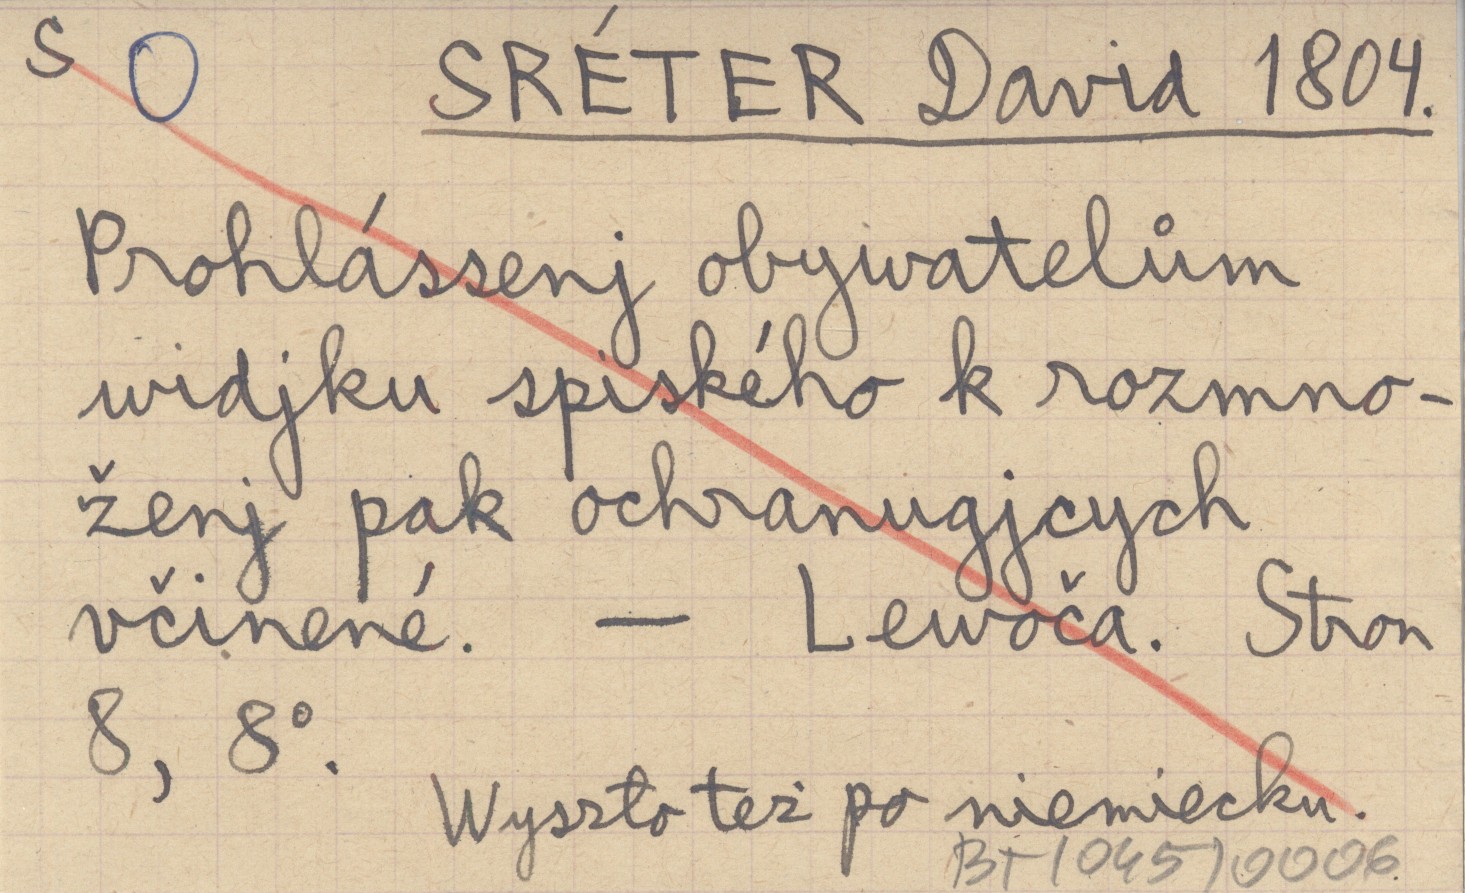 S O SRÉTER David 1804.
Prohlássenj obywatelům
widjku spiského k rozmno-
ženj pak ochranugjcych
včinené. — Lewoča. Stron
8, 8°.
Wyszło też po niemiecku.
BT(045)0006